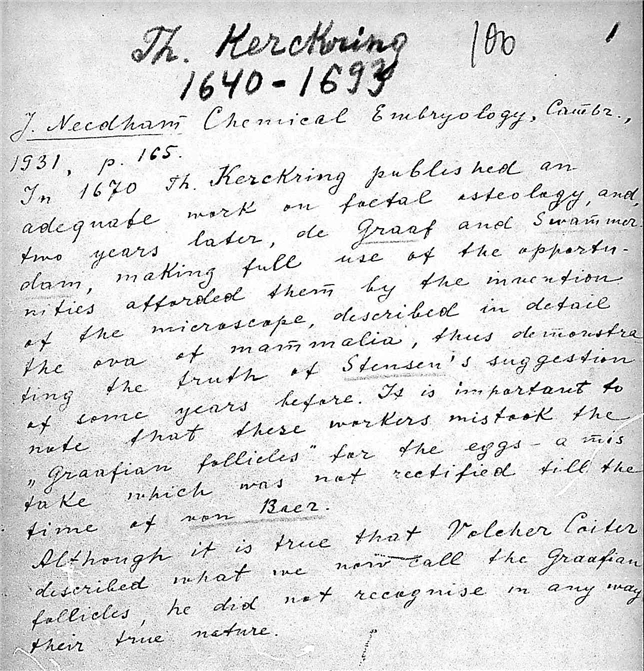 Th. Kerckring 100 1
1640-1693
J. Needham Chemical Embryology, Cambr.,
1931, p. 165.
In 1670 Th. Kerckring published an
adequate work on foetal osteology, and,
two years later, de Graaf and Swammer-
dam, making full use of the opportu-
nities afforded them by the invention
of the microscope, described in detail
the ova of mammalia, thus demonstra
ting the truth of Stensen's suggestion
of some years before. It is important to
note that these workers mistook the
„Graafian follicles" for the eggs - a mis
take which was not rectified till the
time of von Baer.
Although it is true that Volcher Coiter
described what we now call the Graafian
follicles, he did not recognise in any way
their true nature.